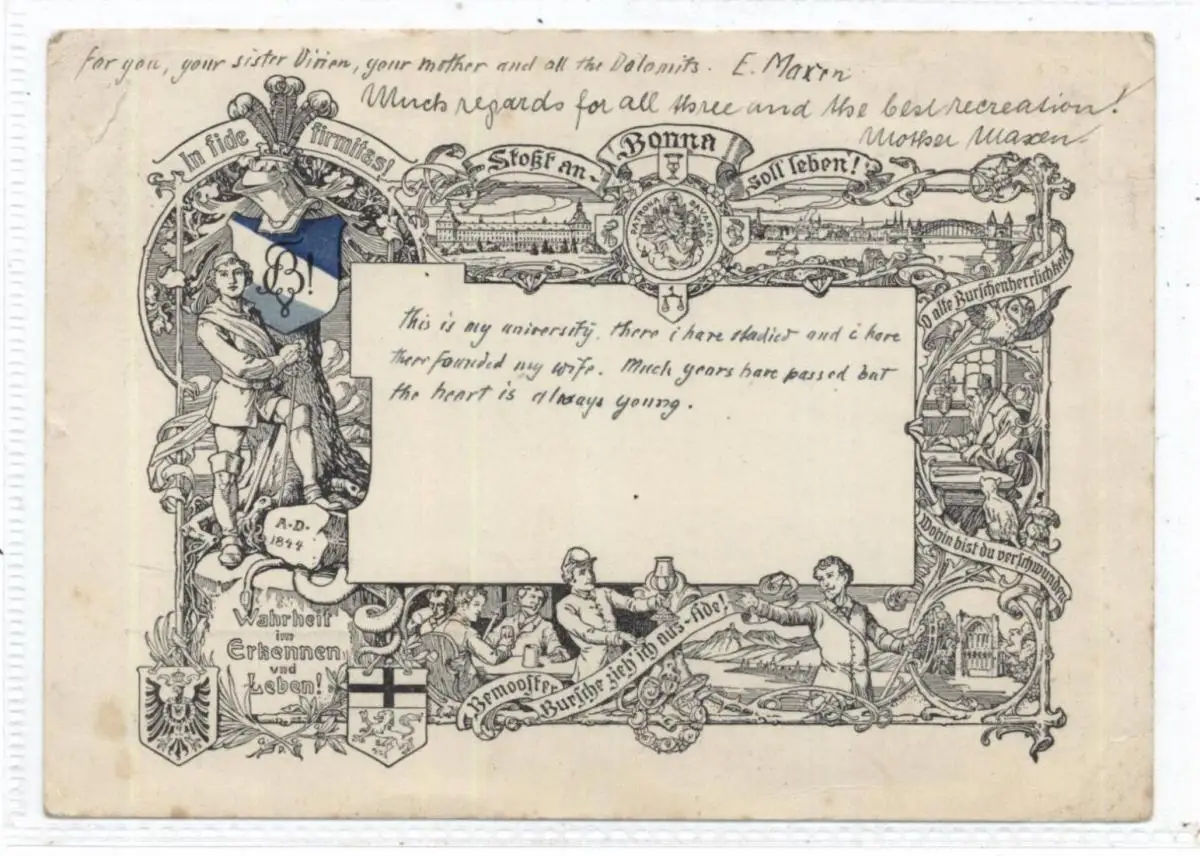 for you, your sister Virien, your mother and all the Dolomits. E. Maxen
Much regards for all three and the best recreation!
Mother Maxen
In fide firmitas!
Stoßt an - Bonna soll leben!
PATRONA BAVARIAE
B!
O alte Burschenherrlichkeit
This is my university, there i have studied and i have
ther founded my wife. Much years have passed but
the heart is always young.
A.D.
1844
Wohin bist du verschwunden
Wahrheit
im
Erkennen
und
Leben!
Bemooster Bursche zieh' ich aus - fide!